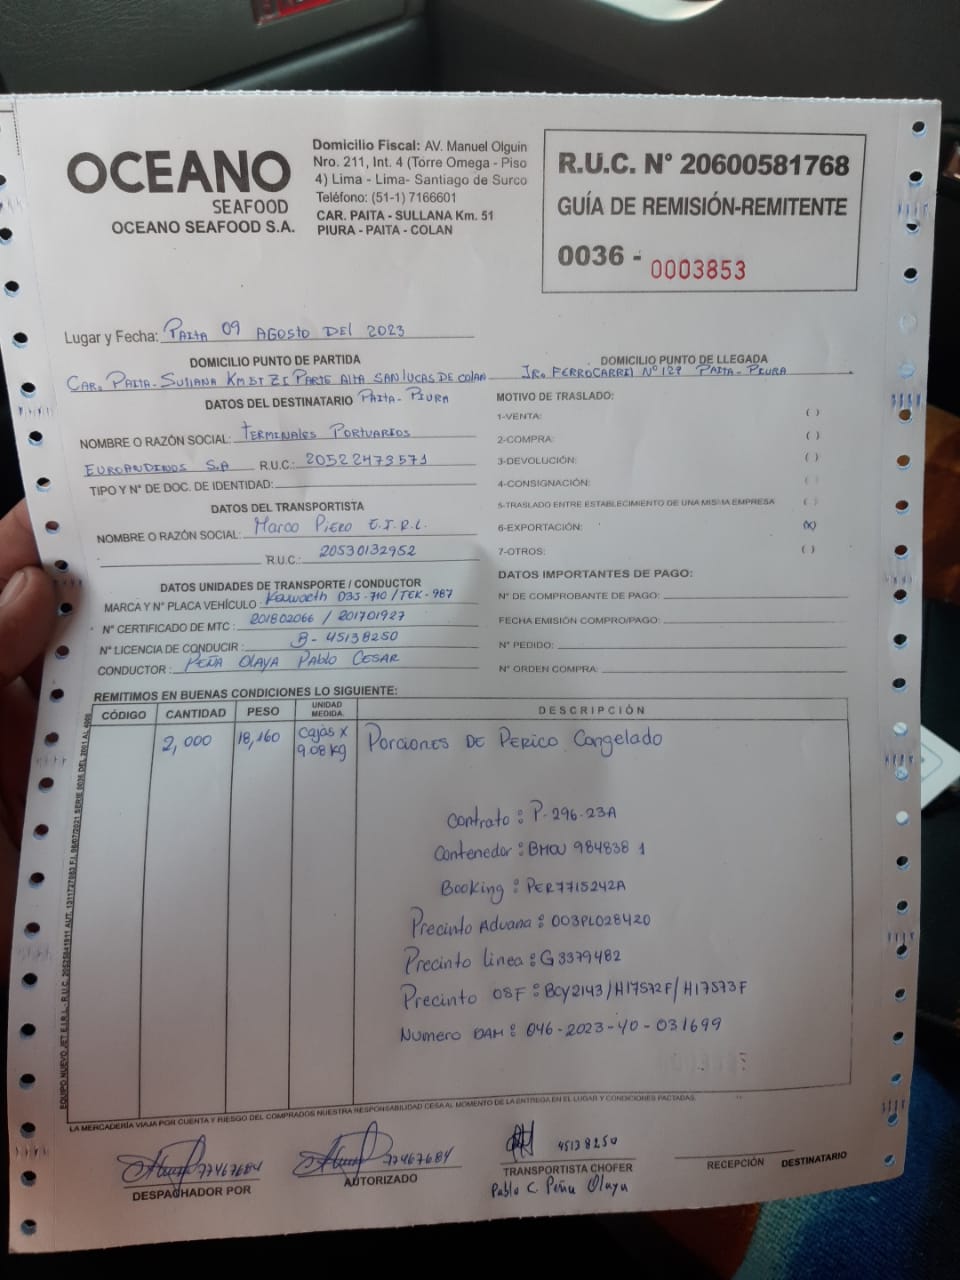 OCEANO
SEAFOOD
OCEANO SEAFOOD S.A.
Domicilio Fiscal: AV. Manuel Olguin
Nro. 211, Int. 4 (Torre Omega - Piso
4) Lima - Lima- Santiago de Surco
Teléfono: (51-1) 7166601
CAR. PAITA - SULLANA Km. 51
PIURA - PAITA - COLAN
R.U.C. N° 20600581768
GUÍA DE REMISIÓN-REMITENTE
0036 - 0003853
Lugar y Fecha: PAITA 09 AGOSTO DEL 2023
DOMICILIO PUNTO DE PARTIDA
CAR. PAITA-SULLANA KM 51 ZI PARTE ALTA SAN LUCAS DE COLAN
PAITA-PIURA
DOMICILIO PUNTO DE LLEGADA
JR. FERROCARRIL N° 127 PAITA-PIURA
DATOS DEL DESTINATARIO
NOMBRE O RAZÓN SOCIAL: TERMINALES PORTUARIOS
EUROANDINOS S.A R.U.C.: 20522473571
TIPO Y N° DE DOC. DE IDENTIDAD:
DATOS DEL TRANSPORTISTA
NOMBRE O RAZÓN SOCIAL: MARCO PIERO E.I.R.L.
R.U.C.: 20530132952
DATOS UNIDADES DE TRANSPORTE / CONDUCTOR
MARCA Y N° PLACA VEHÍCULO: Kenworth D3S-710 / TEK-987
N° CERTIFICADO DE MTC: 201802066 / 201701927
N° LICENCIA DE CONDUCIR: B-45138250
CONDUCTOR: PEÑA OLAYA PABLO CESAR
MOTIVO DE TRASLADO:
1-VENTA: ( )
2-COMPRA: ( )
3-DEVOLUCIÓN: ( )
4-CONSIGNACIÓN: ( )
5-TRASLADO ENTRE ESTABLECIMIENTO DE UNA MISMA EMPRESA ( )
6-EXPORTACIÓN: (X)
7-OTROS: ( )
DATOS IMPORTANTES DE PAGO:
N° DE COMPROBANTE DE PAGO:
FECHA EMISIÓN COMPRO/PAGO:
N° PEDIDO:
N° ORDEN COMPRA:
REMITIMOS EN BUENAS CONDICIONES LO SIGUIENTE:
CÓDIGO CANTIDAD PESO UNIDAD MEDIDA. DESCRIPCIÓN
2,000 18,160 Cajas x 9.08 kg Porciones DE PERICO Congelado
Contrato: P-296-23A
Contenedor: BMOU 984838 1
Booking: PER7715242A
Precinto Aduana: 003PL028420
Precinto linea: G3379482
Precinto OSF: BCY2143/H17572F/H17573F
Numero DAM: 046-2023-40-031699
LA MERCADERÍA VIAJA POR CUENTA Y RIESGO DEL COMPRADOS NUESTRA RESPONSABILIDAD CESA AL MOMENTO DE LA ENTREGA EN EL LUGAR Y CONDICIONES PACTADAS.
77467684
DESPACHADOR POR
77467684
AUTORIZADO
45138250
TRANSPORTISTA CHOFER
Pablo C. Peña Olaya
RECEPCIÓN DESTINATARIO